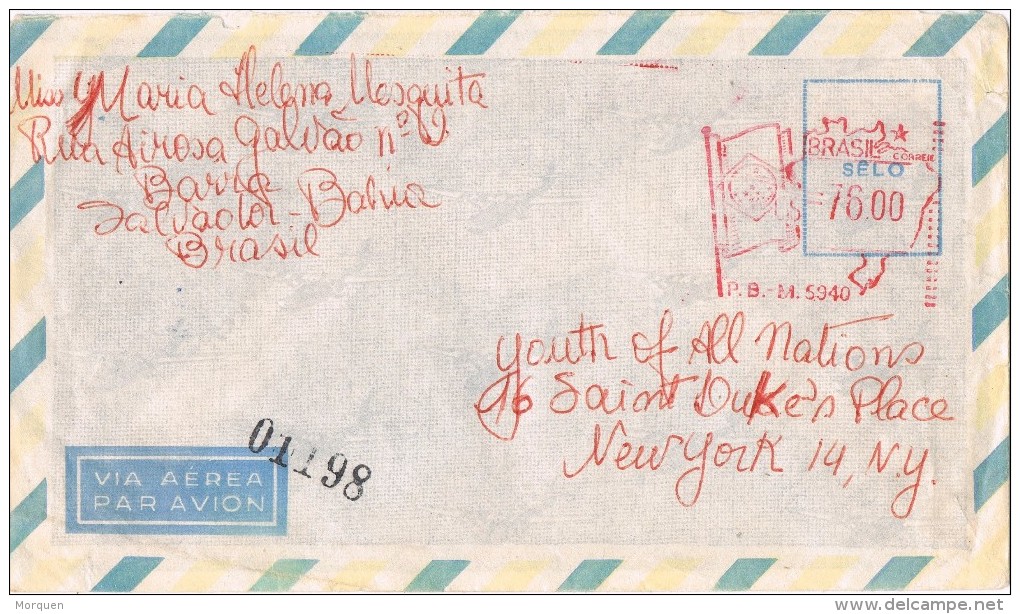 Miss Maria Helena Mesquita
Rua Airosa Galvão nº 9.
Barra
Salvador - Bahia
Brasil
BRASIL
CORREIO
SÊLO
76.00
P.B.-M. 5940
Youth of All Nations
16 Saint Duke's Place
New York 14, N.Y.
01198
VIA AÉREA
PAR AVION
Morquen
delcampe.net